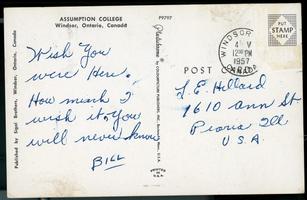 ASSUMPTION COLLEGE
Windsor, Ontario, Canada
P9797
PUT
STAMP
HERE
WINDSOR
4 V
12 PM
1957
ONTARIO
Published by Sigal Brothers, Windsor, Ontario, Canada
Wish You
were Here.
How much I
wish it, you
will never know
BILL
POST CARD
L. E. Hillard
1610 ann St
Peoria Ill
U.S.A.